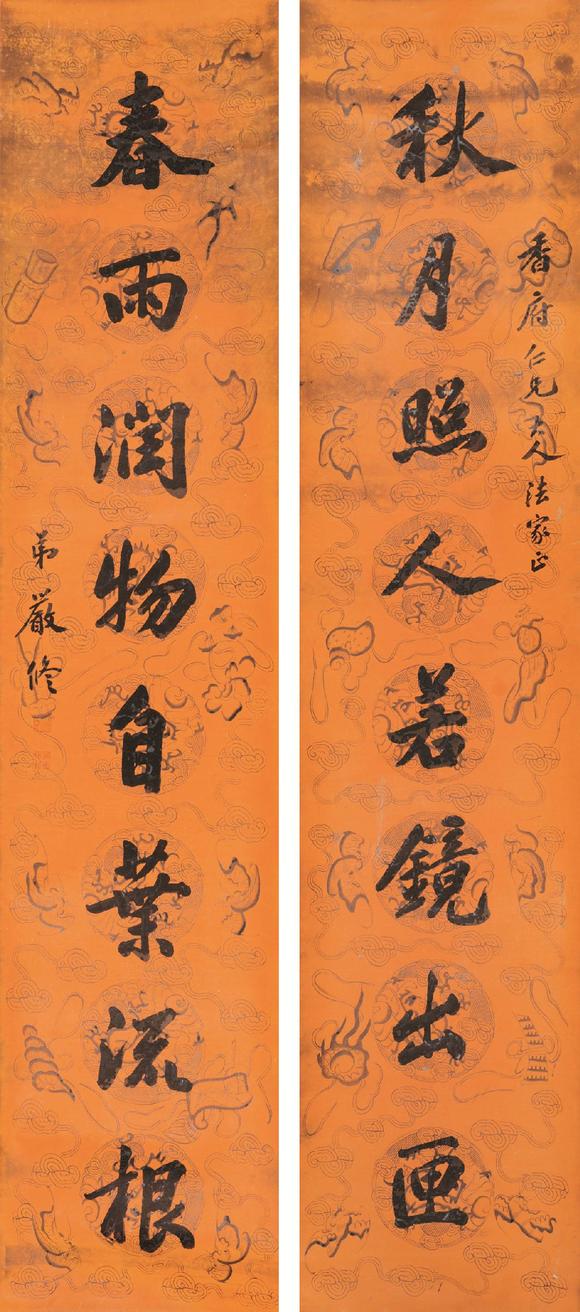 香府仁兄大人法家正
秋月照人若鏡出匣
春雨潤物自葉流根
弟嚴修